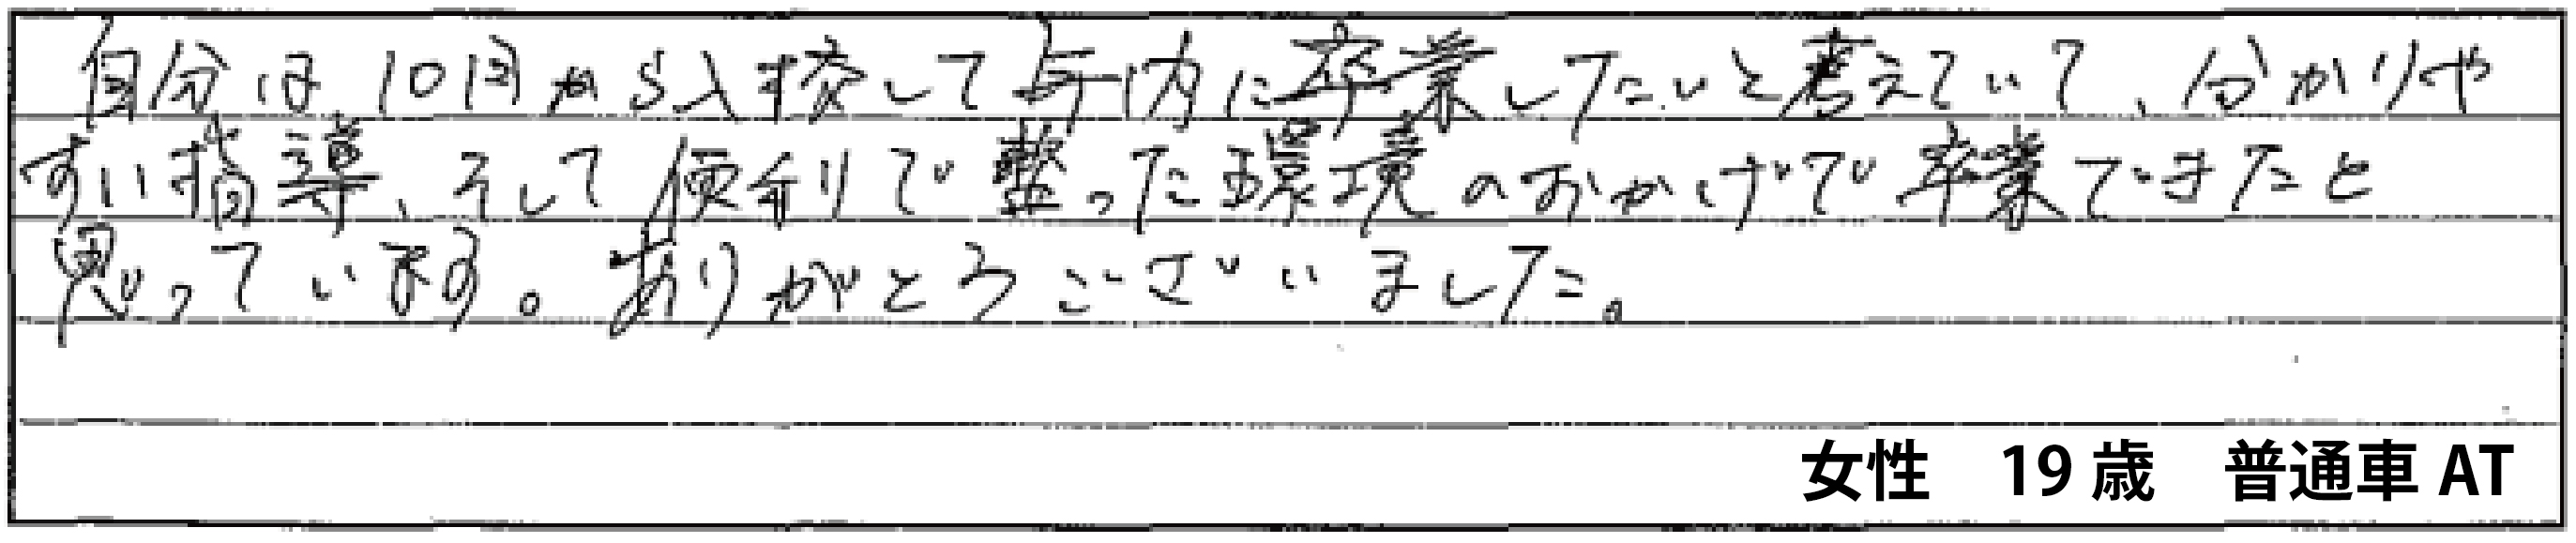 自分は10月から入校して年内に卒業したいと考えていて、分かりや
すい指導、そして便利で整った環境のおかげで卒業できたと
思っています。ありがとうございました。
女性　19歳　普通車AT